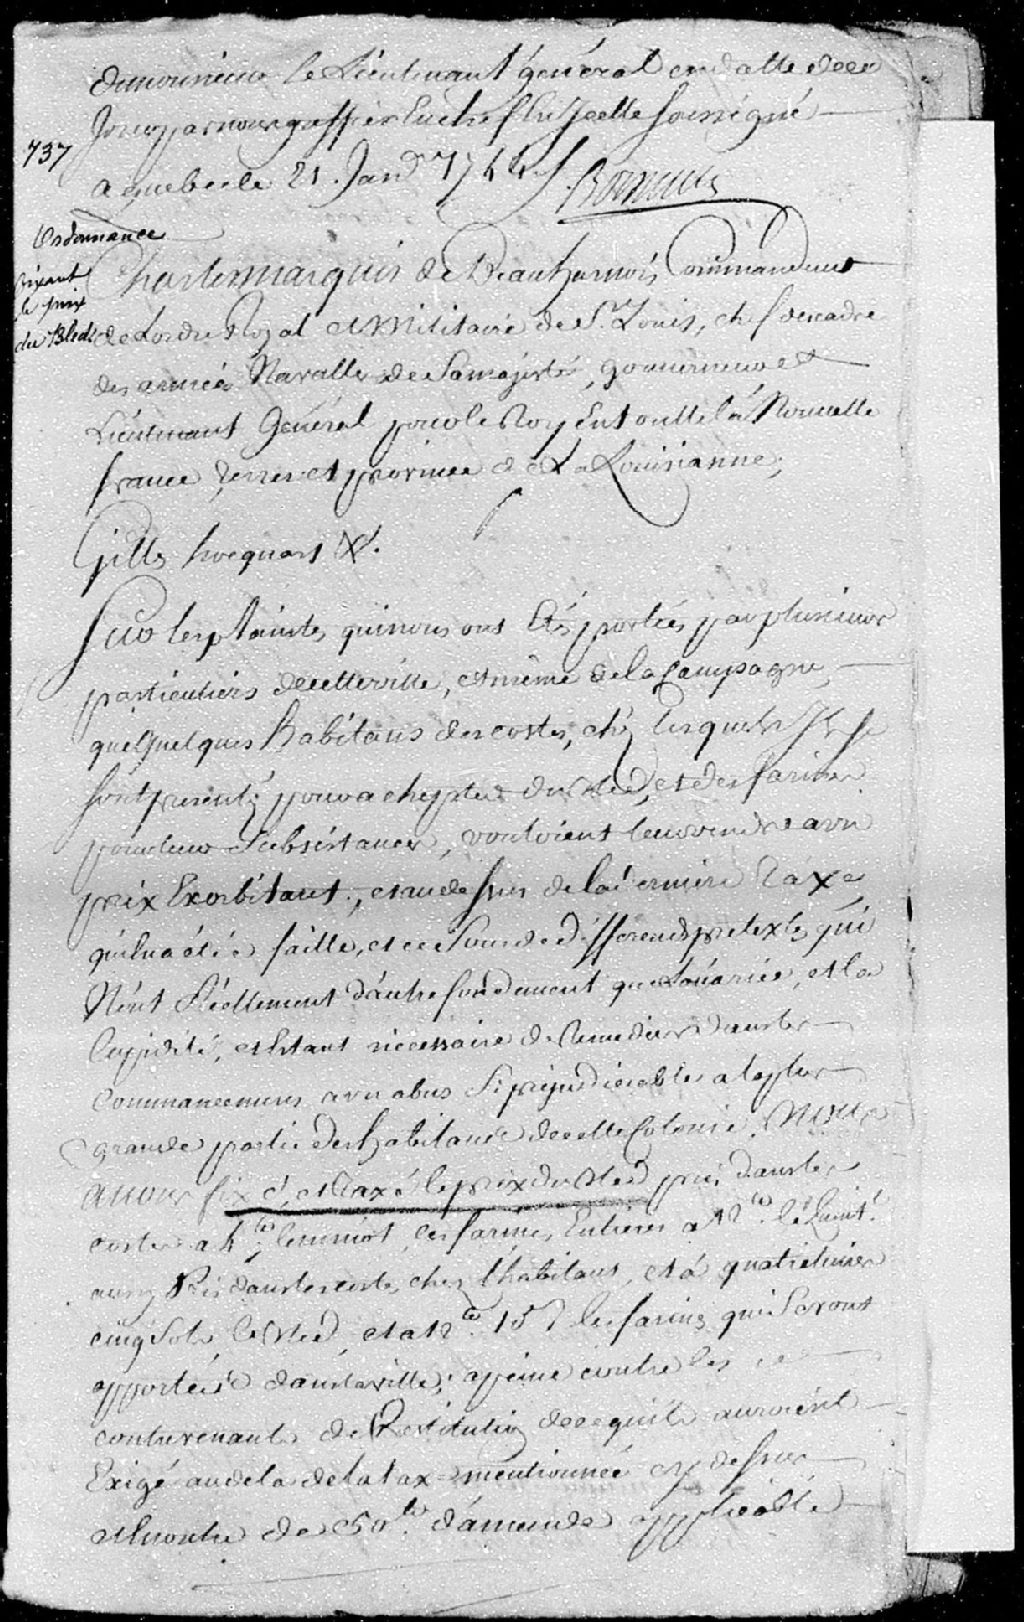 de monsieur le Lieutenant général en datte de ce
Jour par nous greffier En chef En jcelle soussigné
737
a quebec le 21. Janv. 1744 Boisseau
Ordonnance
fixant
le prix
du Bled
Charles marquis de Beauharnois Commandeur
de Lordre Royal et Militaire de St. Louis, chef descadre
des armées Navalles de Sa majesté, gouverneur et
Lieutenant Général pour le Roy En toutte la Nouvelle
france, terres et province de La Louisianne,
Gilles hocquart &c.
Sur les plaintes qui nous ont Eté portées par plusieurs
particuliers de cette ville, et même de la Campagne,
que quelques habitans des costes, chez lesquels Ils se
sont presentés pour achepter du bled, et des farines
pour leur subsistance, vouloient leur vendre a un
prix Exorbitant, et au dessus de la derniere taxe
qui en a été faitte, et ce sous de differends pretextes qui
N'ont Réellement d'autre fondement que Lavarice, et la
Cupidité, et Etant nécessaire de Remedier dans les
commancemens a un abus Si préjudiciable a la plus
grande partie des habitans de cette Colonie, Nous
avons fixé, et taxé le prix du bled pris dans les
costes a 4lt. le minot, les farines Entieres a 12lt. le quint.
aussy Pris dans les costes chez l'habitant, et a quatre livres
cinq Sols le bled, et a 12lt. 15s les farines qui Seront
apportées dans la ville; a peine contre les
contrevenants de Restitution de ce qu'ils auroient
Exigé audela de la taxe mentionnée cy dessus
et En outre de 50lt. d'amende applicable